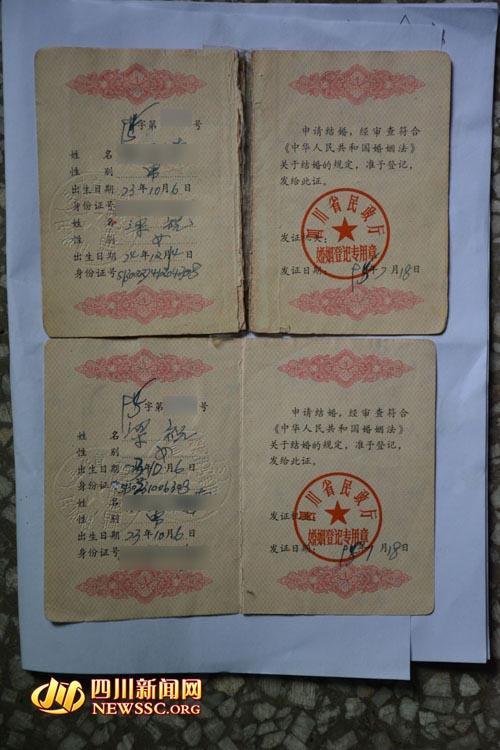 字第 号
姓 名
性 别 男
出生日期 23年10月6日
身份证号
姓 名 梁
性 别 女
出生日期 24年12月14日
身份证号
申请结婚，经审查符合
《中华人民共和国婚姻法》
关于结婚的规定，准予登记，
发给此证。
四川省民政厅
婚姻登记专用章
发证机关：
发证日期： 年7月18日
字第 号
姓 名 梁
性 别 女
出生日期 年12月6日
身份证号
姓 名
性 别 男
出生日期 23年10月6日
身份证号
申请结婚，经审查符合
《中华人民共和国婚姻法》
关于结婚的规定，准予登记，
发给此证。
四川省民政厅
婚姻登记专用章
发证机关：
发证日期： 年7月18日
四川新闻网
NEWSSC.ORG